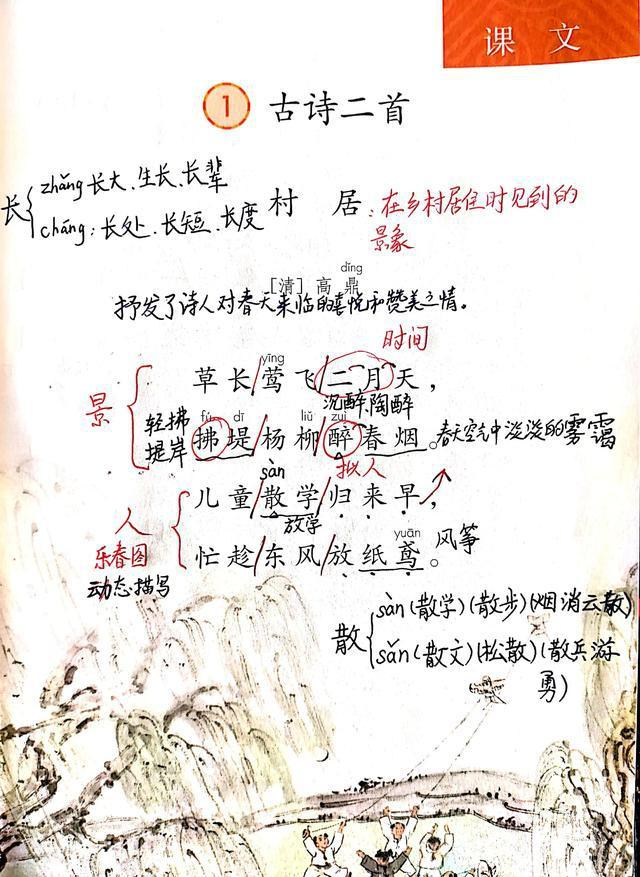 课 文
1 古诗二首
长
zhǎng 长大、生长、长辈
cháng：长处、长短、长度
村 居：在乡村居住时见到的
景象
dǐng
[清] 高 鼎
抒发了诗人对春天来临的喜悦和赞美之情。
时间
yīng
草长/莺飞/二月天，
景
沉醉、陶醉
轻拂
堤岸
fú dī liǔ zuì
拂堤/杨柳/醉春烟。春天空气中淡淡的雾霭
拟人
sàn
儿童/散学/归来早，
放学
人
乐春图
动态描写
yuān
忙趁/东风/放纸鸢。风筝
散
sàn (散学) (散步) (烟消云散)
sǎn (散文) (松散) (散兵游
勇)